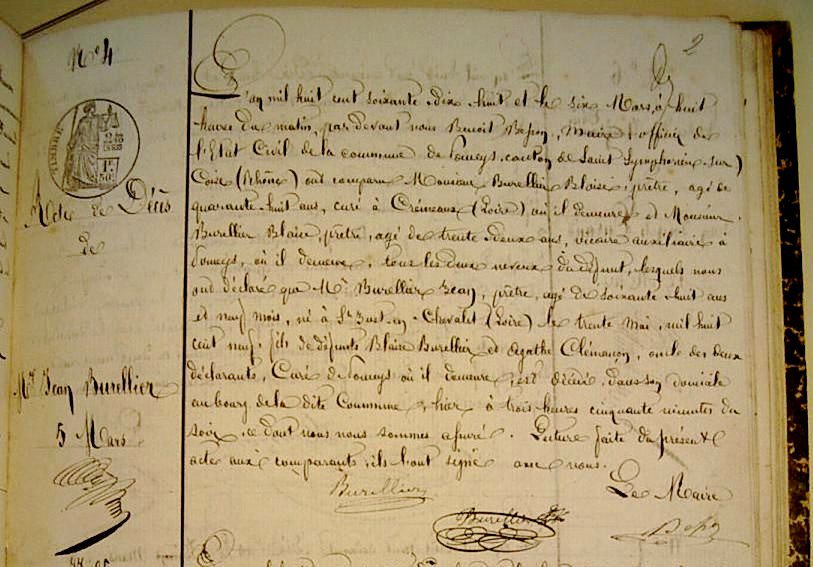 2
N° 4
TIMBRE
Acte de Décès
de
Mr Jean Burellier
5 Mars
L'an mil huit cent soixante dix huit et le six Mars, à huit
heures du matin, par devant nous Benoit, Maire, officier de
l'Etat Civil de la commune de Pomeys, canton de Saint Symphorien sur
Coise (Rhône) ont comparu Monsieur Burellier Blaise, prêtre, agé de
quarante huit ans, curé à Crémeaux (Loire) où il demeure et Monsieur
Burellier Blaise, prêtre, agé de trente deux ans, vicaire auxiliaire à
Pomeys, où il demeure, tous les deux neveux du défunt, lesquels nous
ont déclaré que Mr Burellier Jean, prêtre, agé de soixante huit ans
et neuf mois, né à St Just en Chevalet (Loire) le trente Mai, mil huit
cent neuf, fils de défunts Blaise Burellier et Agathe Clémançon, oncle des deux
déclarants, Curé de Pomeys où il demeure, est décédé, dans son domicile
au bourg de la dite Commune, hier à trois heures cinquante minutes du
soir, ce dont nous nous sommes assuré. Lecture faite du présent
acte aux comparants, ils l'ont signé avec nous.
Le Maire
Burellier
Burellier